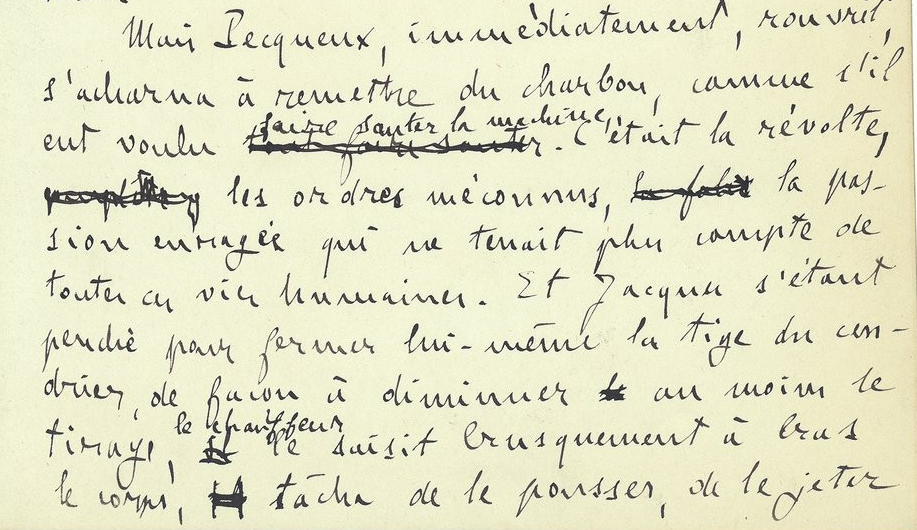 Mais Pecqueux, immédiatement, rouvrit,
s'acharna à remettre du charbon, comme s'il
faire sauter la machine,
eut voulu tout faire sauter. C'était la révolte,
les ordres méconnus, la folie la pas-
sion enragée qui ne tenait plus compte de
toutes ces vies humaines. Et Jacques s'étant
penché pour fermer lui-même la tige du cen-
drier, de façon à diminuer au moins le
le chauffeur
tirage, le saisit brusquement à bras
le corps, il tâcha de le pousser, de le jeter